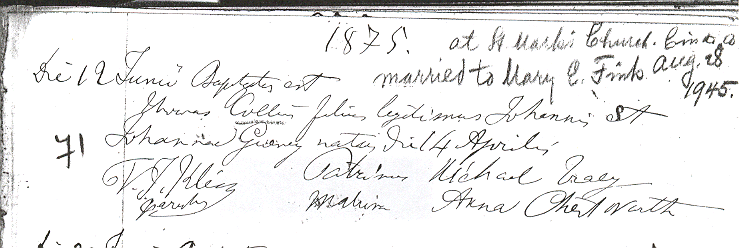 1875. at St Mark's Church. Cin ti, O
married to Mary E. Fink Aug. 28
1945.
Die 12 Junii Baptatus est
Thomas Collin filius legitimus Johannis et
71 Johanna natus Die 14 Aprilis
Patrinus Michael Tracy
Matrina Anna